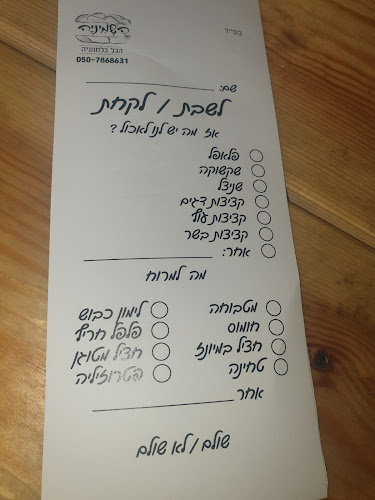 בס״ד
השמיניה
הכל בלחמניה
050-7868631
שם:
לשבת / לקחת
אז מה יש לנו לאכול?
פלאפל
שקשוקה
שניצל
קציצות דגים
קציצות עוף
קציצות בשר
אחר:
מה למרוח
מטבוחה
חומוס
חציל במיונז
טחינה
לימון כבוש
פלפל חריף
חציל מטוגן
פטרוזיליה
אחר
שולם / לא שולם